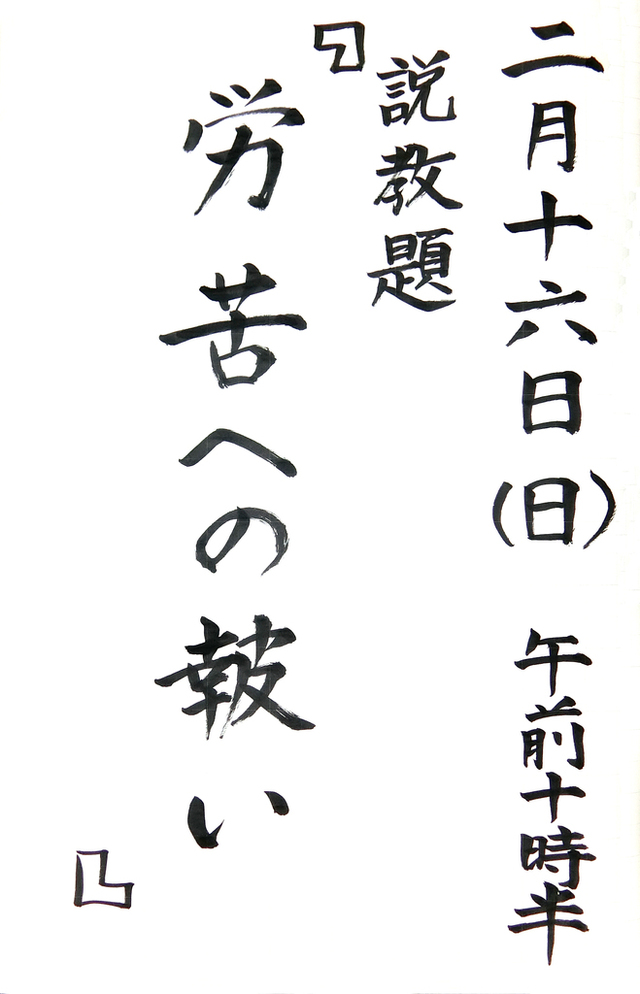 二月十六日(日) 午前十時半
説教題
『労苦への報い』